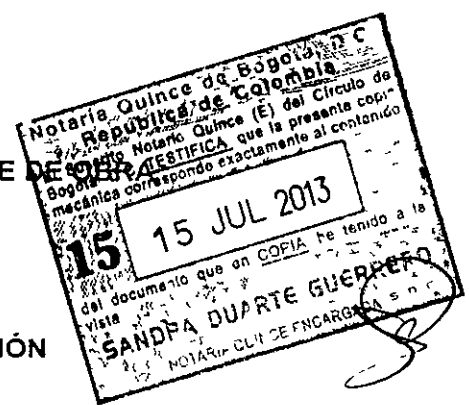 Notaría Quince de Bogotá, D C
República de Colombia
Notario Quince (E) del Círculo de
Bogotá TESTIFICA que la presente copia
mecánica corresponde exactamente al contenido
E DE OBRA
15
15 JUL 2013
del documento que en COPIA he tenido a la
vista
SANDRA DUARTE GUERRERO
NOTARIA QUINCE ENCARGADA
IÓN